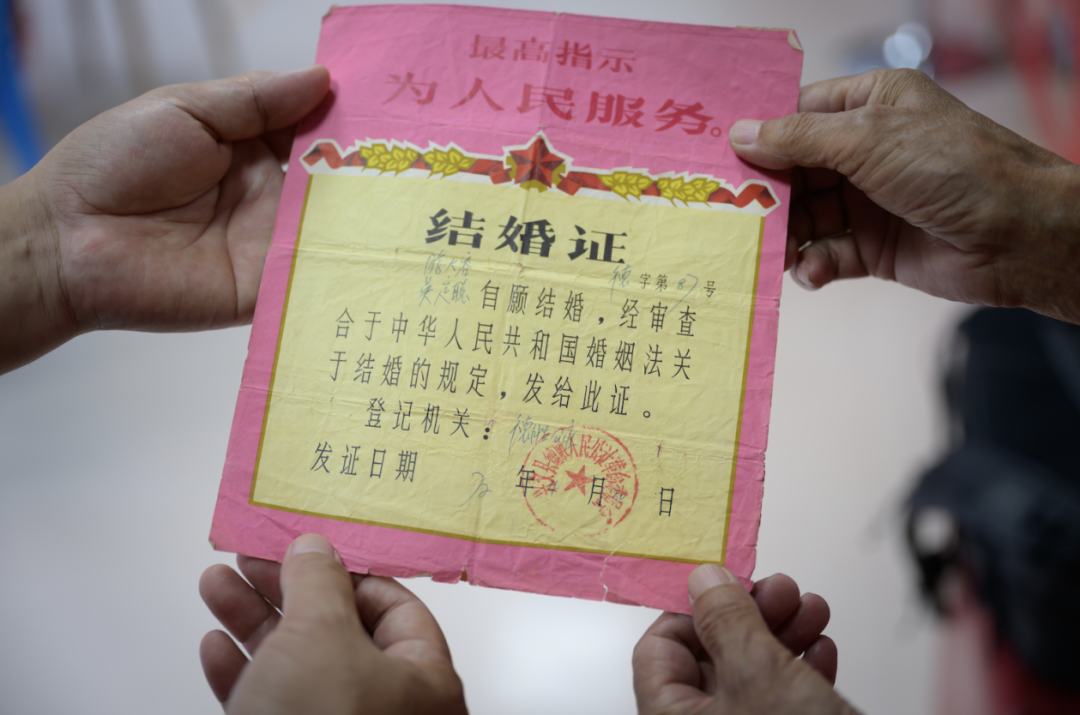 最高指示
为人民服务。
结婚证
德字第87号
自愿结婚，经审查
合于中华人民共和国婚姻法关
于结婚的规定，发给此证。
登记机关：德胜
发证日期 年 月 日